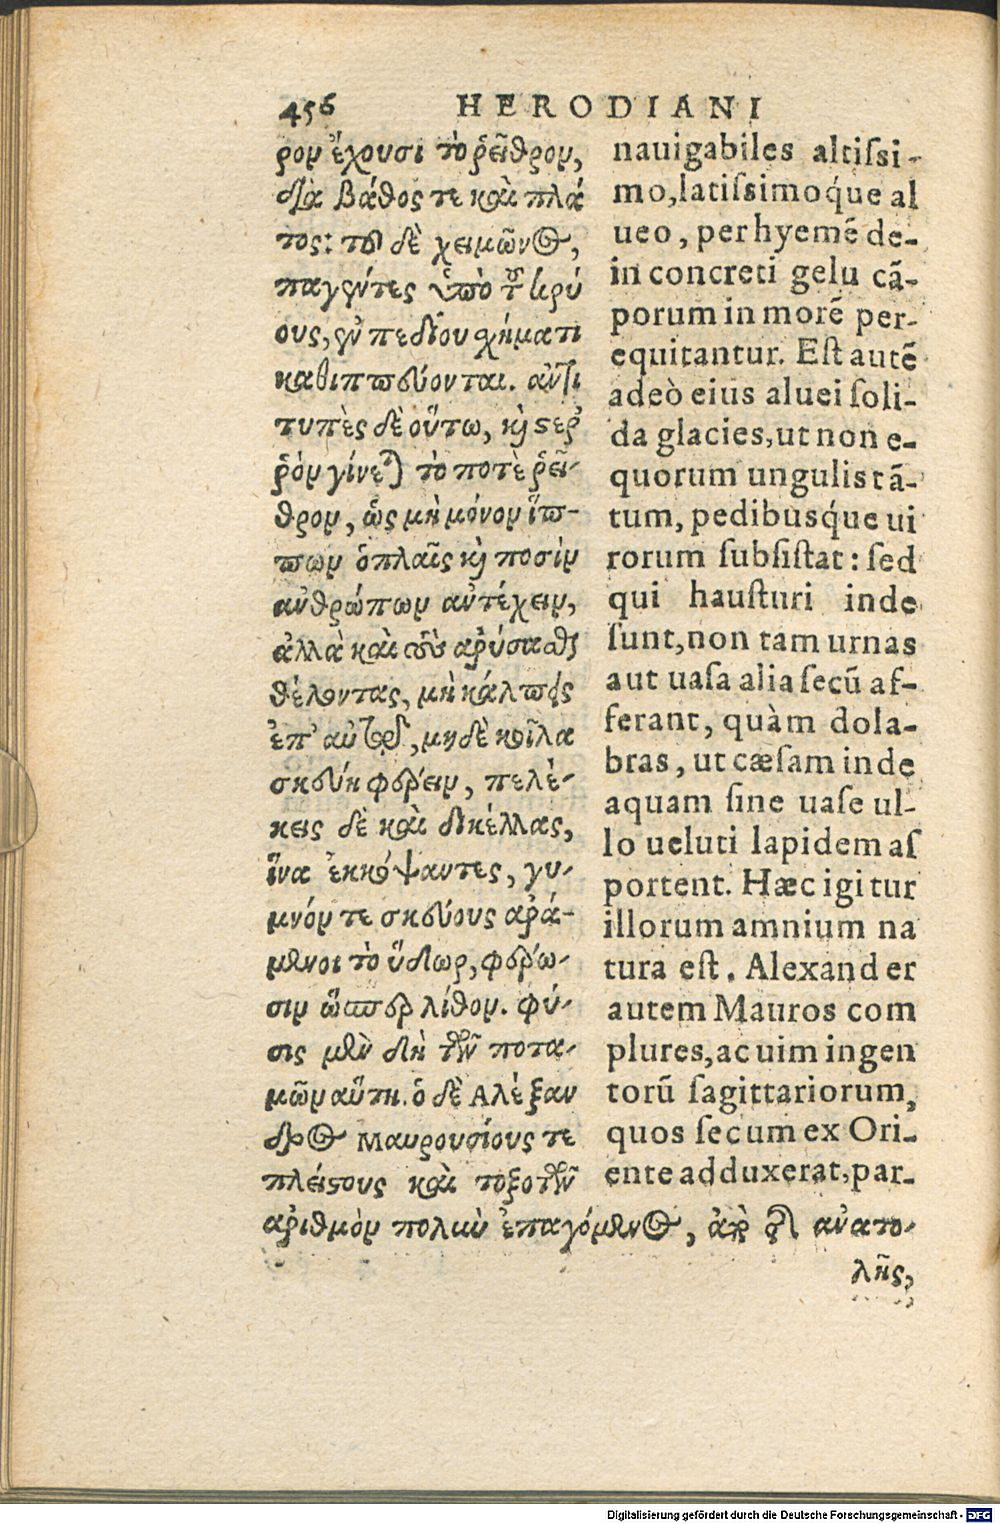 456 HERODIANI
ρον ἔχουσι τὸ ῥεῖθρον,
διὰ βάθος τε καὶ πλά
τος: τοῦ δὲ χειμῶνος,
παγέντες ὑπὸ τοῦ κρύ
ους, ἐν πεδίου χήματι
καθιππεύονται. ἀντι
τυπὲς δὲ οὕτω, καὶ στερ
ῥὸν γίνεται τὸ ποτὲ ῥεῖ-
θρον, ὡς μὴ μόνον ἵπ-
πων ὁπλαῖς καὶ ποσὶν
ἀνθρώπων ἀντέχειν,
ἀλλὰ καὶ τοὺς ἀρύσασθαι
θέλοντας, μὴ κάλπεις
ἐπ' αὐτὸ, μηδὲ κοῖλα
σκεύη φέρειν, πελέ-
κεις δὲ καὶ δικέλλας,
ἵνα ἐκκόψαντες, γυ-
μνόν τε σκεύους ἀρά-
μενοι τὸ ὕδωρ, φέρω-
σιν ὥσπερ λίθον. φύ-
σις μὲν δὴ τῶν ποτα-
μῶν αὕτη. ὁ δὲ Ἀλέξαν
δρος Μαυρουσίους τε
πλείστους καὶ τοξοτῶν
ἀριθμὸν πολὺν ἐπαγόμενος, ἀπὸ τῆς ἀνατο-
λῆς,
nauigabiles altiſsi-
mo, latiſsimoq́ue al
ueo, per hyemẽ de-
in concreti gelu cã-
porum in morẽ per-
equitantur. Eſt autẽ
adeò eius aluei ſoli-
da glacies, ut non e-
quorum ungulis tã-
tum, pedibusq́ue ui
rorum ſubſiſtat: ſed
qui hauſturi inde
ſunt, non tam urnas
aut uaſa alia ſecũ af-
ferant, quàm dola-
bras, ut cæſam inde
aquam ſine uaſe ul-
lo ueluti lapidem aſ
portent. Hæc igitur
illorum amnium na
tura eſt. Alexander
autem Mauros com
plures, ac uim ingen
torũ ſagittariorum,
quos ſecum ex Ori-
ente adduxerat, par-
Digitalisierung gefördert durch die Deutsche Forschungsgemeinschaft - DFG